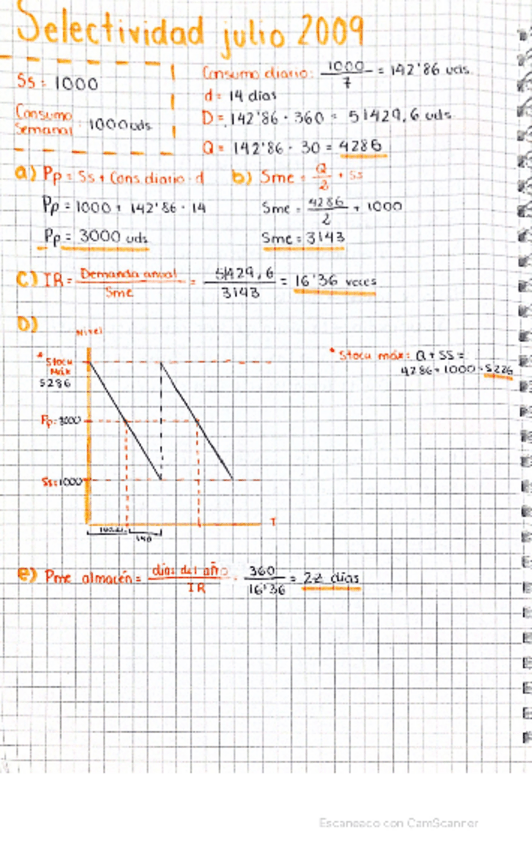 Selectividad julio 2009
Ss = 1000
Consumo Semanal 1000 uds
Consumo diario: 1000/7 = 142'86 uds.
d = 14 días
D = 142'86 · 360 = 51429,6 uds
Q = 142'86 · 30 = 4286
a) Pp = Ss + Cons. diario · d
Pp = 1000 + 142'86 · 14
Pp = 3000 uds
b) Sme = Q/2 + SS
Sme = 4286/2 + 1000
Sme = 3143
c) IR = Demanda anual/Sme = 51429,6/3143 = 16'36 veces
D)
Nivel
* Stock Máx
5286
Pp = 3000
Ss = 1000
T
* Stock máx: Q + SS =
4286 + 1000 =
e) Pme almacén = días del año/IR = 360/16'36 = 22 días
Escaneado con CamScanner